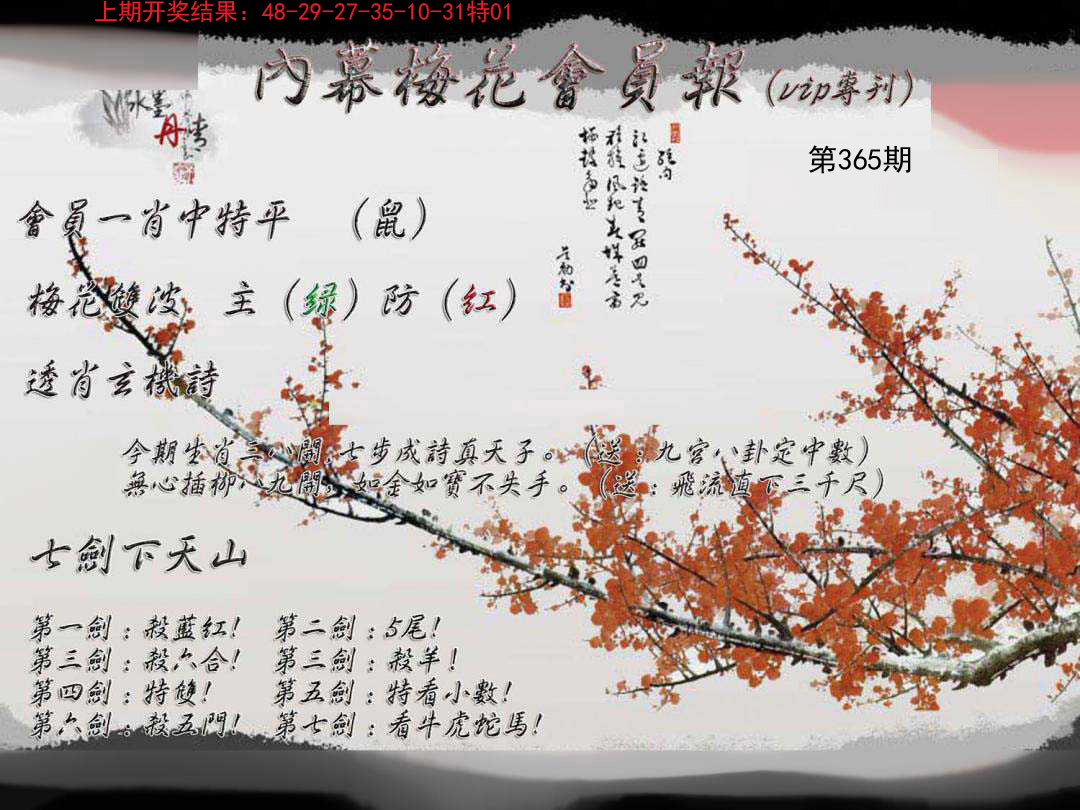 上期开奖结果：48-29-27-35-10-31特01
內幕梅花會員報（vip專刊）
水墨
丹青
第365期
會員一肖中特平　（鼠）
梅花雙波　主（绿）防（红）
透肖玄機詩
今期生肖三八開,七步成詩真天子。（送：九宮八卦定中數）
無心插柳八九開，如金如寶不失手。（送：飛流直下三千尺）
七劍下天山
第一劍：殺藍紅！　第二劍：5尾！
第三劍：殺六合！　第三劍：殺羊！
第四劍：特雙！　第五劍：特看小數！
第六劍：殺五門！　第七劍：看牛虎蛇馬！